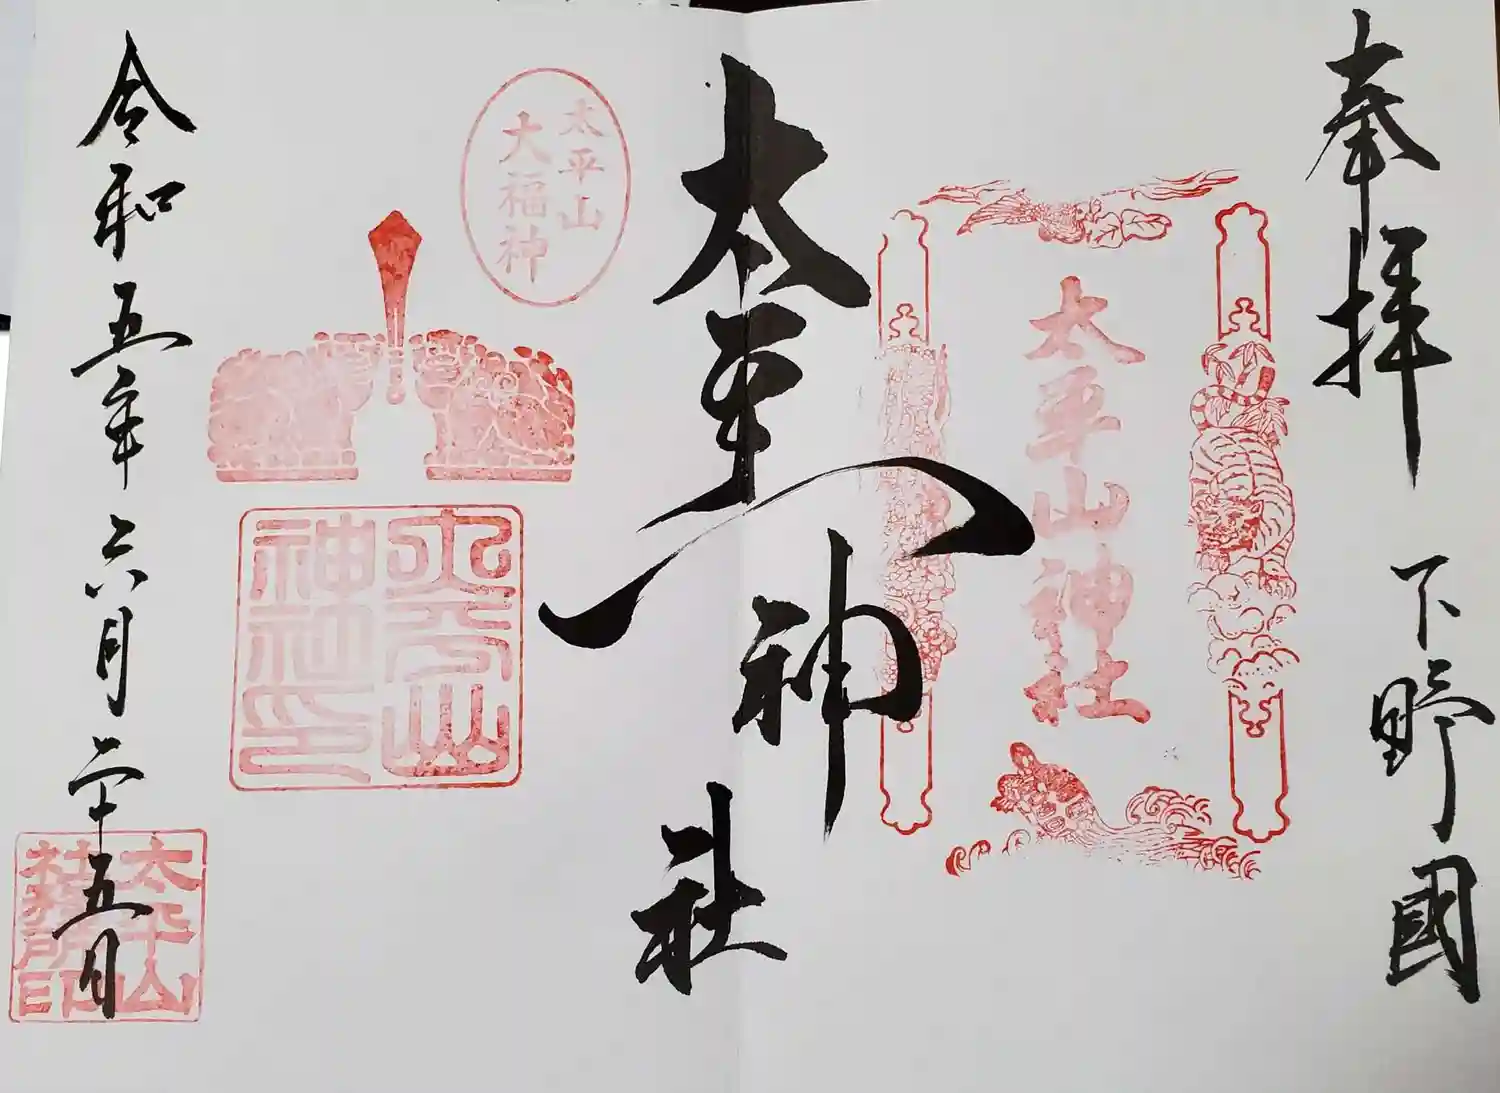 奉拝
下野國
太平山神社
太平山神社
太平山
大福神
太平山
神社印
令和五年六月二十五日
太平山
社務所印